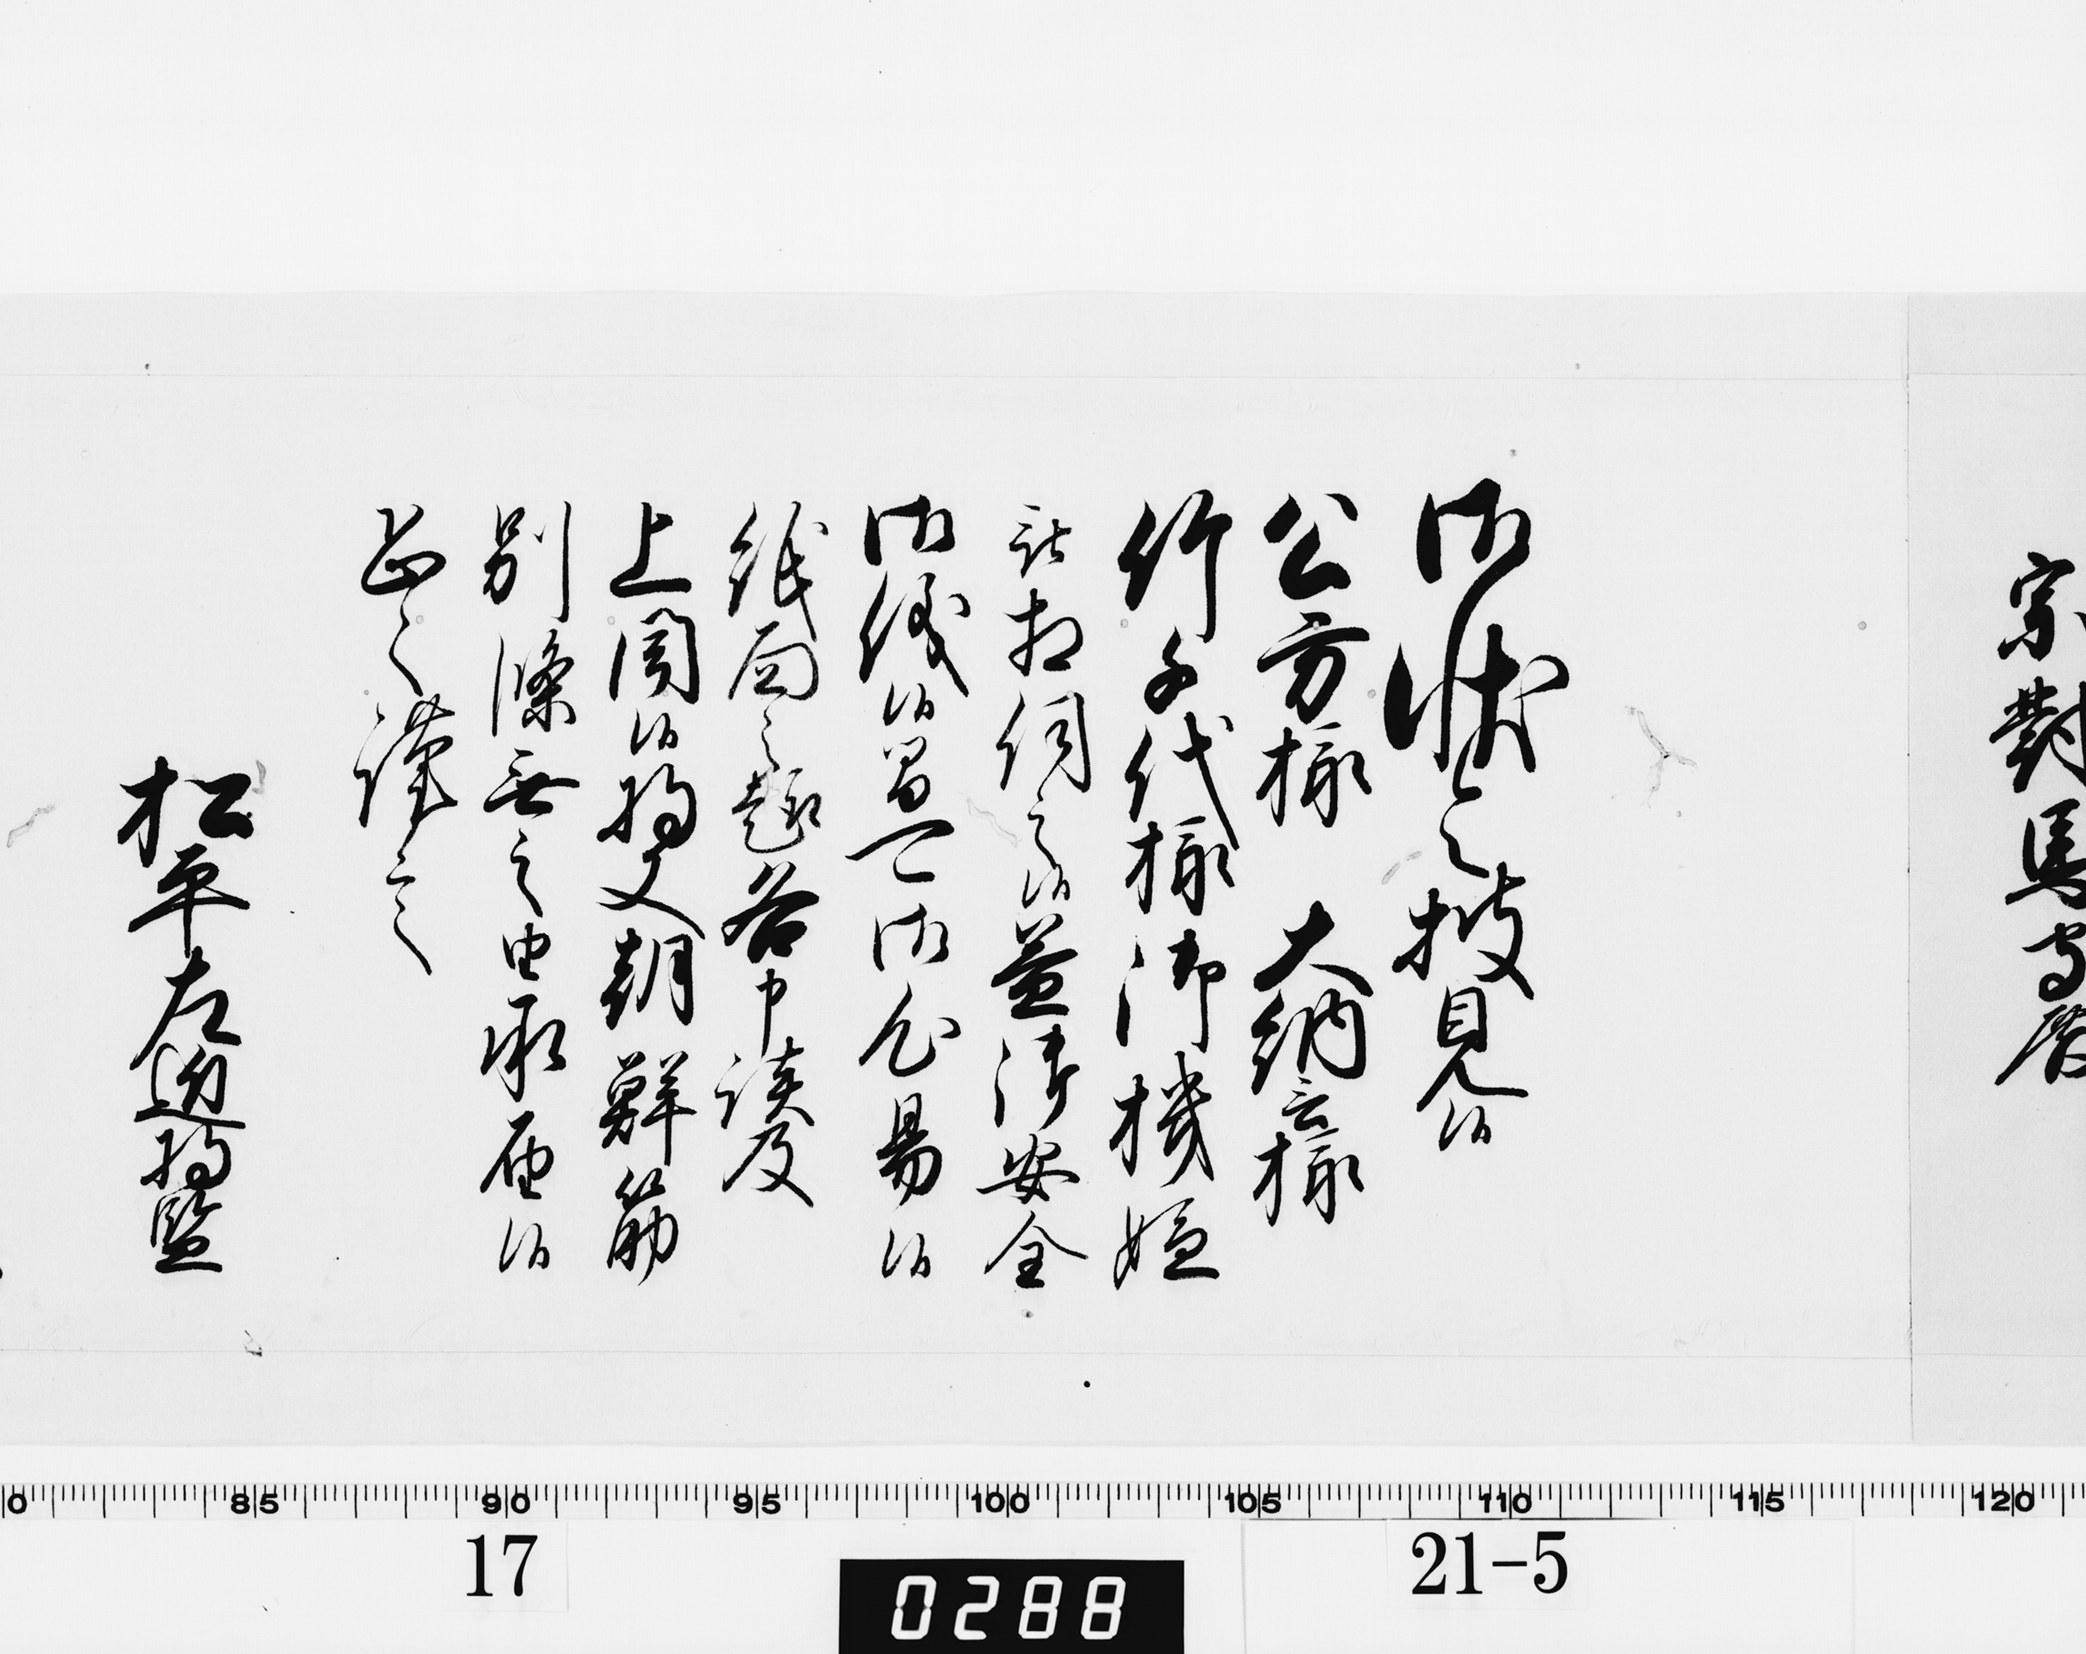 宗對馬守殿
御状令披見候
公方様 大納言様
竹千代様御機嫌
被相伺之候益御安全
御儀候間可御心易候
紙面之趣各申談及
上聞候将又朝鮮筋
別條無之由承届候
恐々謹言
松平左近将監
0 85 90 95 100 105 110 115 120
17
0288
21-5